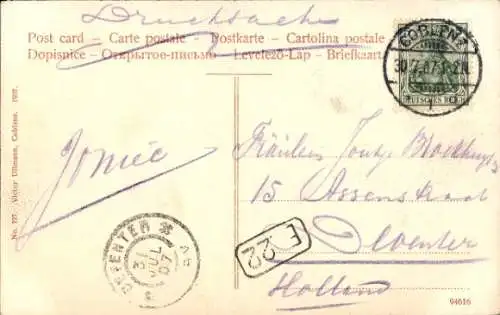 Drucksache
Post card — Carte postale — Postkarte — Cartolina postale
Dopisnice — Открытое-письмо — Levelezö-Lap — Briefkaart
COBLENZ
30.7.07
DEUTSCHES REICH
Fräulein
15 Assenstraat
Deventer
Holland
DEVENTER
31 JUL 07
E 22
No. 127. Victor Ullmann, Coblenz. 1907.
94616